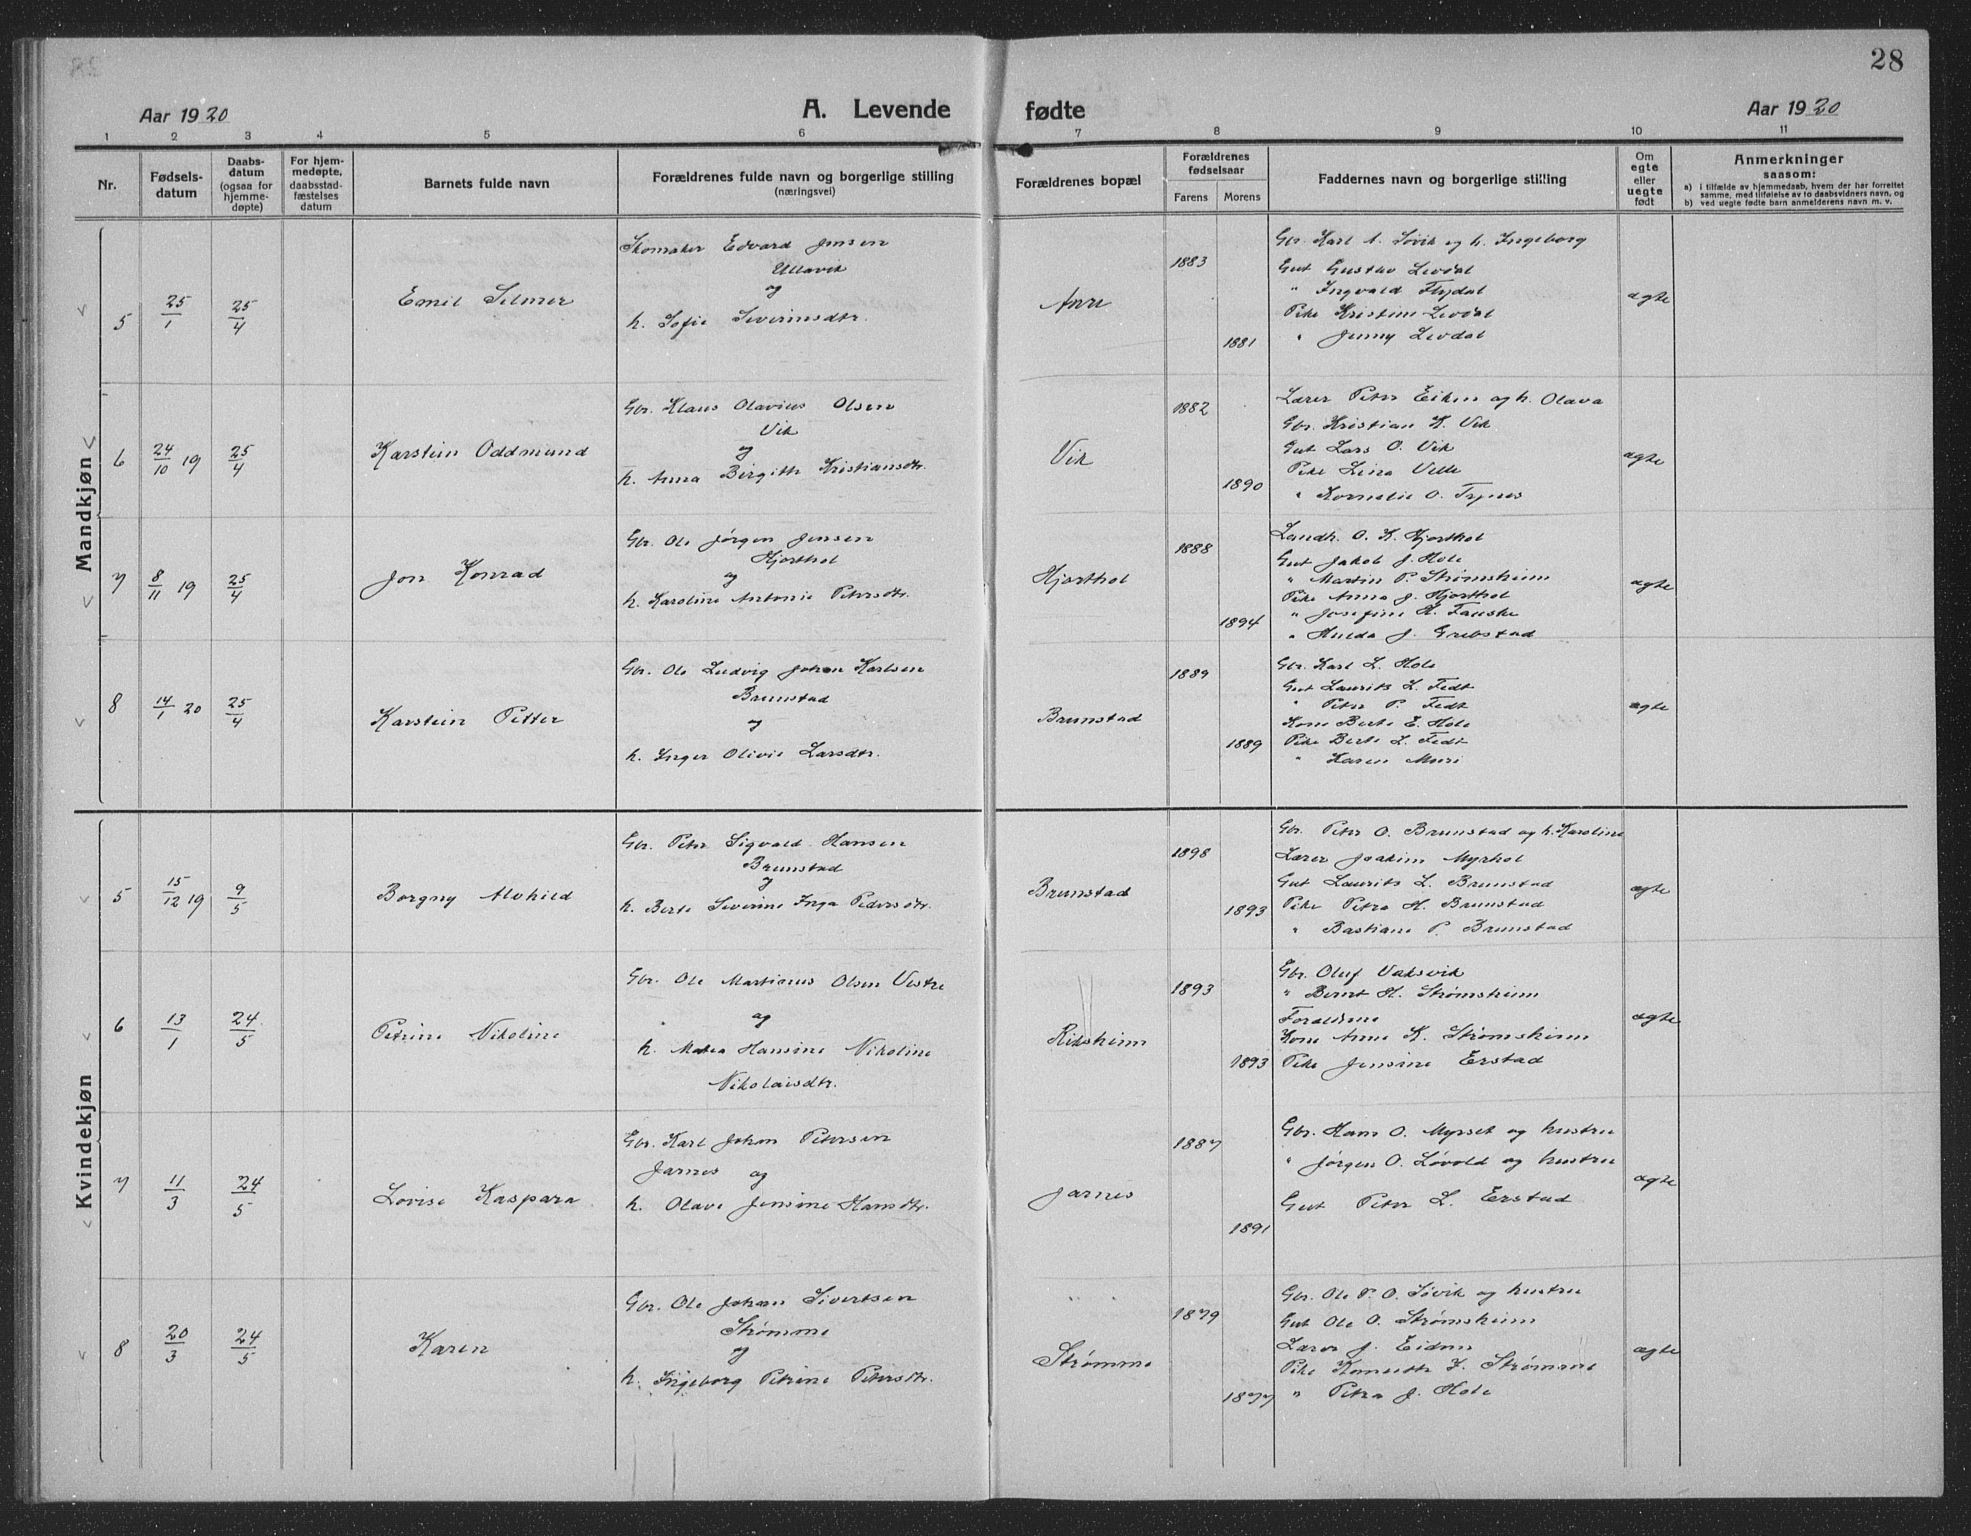 28
Aar 1920
A. Levende fødte
Aar 1920
1 2 3 4 5 6 7 8 9 10 11
Nr.
Fødsels-
datum
Daabs-
datum
(ogsaa for
hjemme-
døpte)
For hjem-
medøpte,
daabsstad-
fæstelses
datum
Barnets fulde navn
Forældrenes fulde navn og borgerlige stilling
(næringsvei)
Forældrenes bopæl
Forældrenes
fødselsaar
Farens Morens
Faddernes navn og borgerlige stilling
Om
egte
eller
uegte
født
Anmerkninger
saasom:
a) i tilfælde av hjemmedaab, hvem der har forrettet
samme, med tilføielse av to daabsvidners navn, og
b) ved uegte fødte barn anmelderens navn m. v.
Mandkjøn
5
25/1
25/4
Emil Selmer
Skomaker Edvard Jensen
Ullavik
og
h. Sofie Severinsdtr.
1883
1881
Gbr. Karl A. Søvik og h. Ingeborg
Gut Gustav Levdal
" Ingvald Flydal
Pike Kristine Levdal
" Jenny Levdal
ægte
6
24/10 19
25/4
Karstein Oddmund
Gbr. Klaus Olavius Olsen
Vik
og
h. Anna Birgith Kristiansdtr.
Vik
1882
1890
Lærer Peter Eiken og h. Olava
Gbr. Kristian K. Vik
Gut Lars O. Vik
Pike Lina Velle
" Kornelie O. Tynes
ægte
7
8/11 19
25/4
Jon Konrad
Gbr. Ole Jørgen Jensen
Hjorthol
og
h. Karoline Antonie Petersdtr.
Hjorthol
1888
1894
Landh. O. K. Hjorthol
Gut Jakob J. Hole
" Martin P. Strømsheim
Pike Anna J. Hjorthol
" Josefine H. Fauske
" Hulda J. Grebstad
ægte
8
14/1 20
25/4
Karstein Petter
Gbr. Ole Ludvig Johan Karlsen
Brunstad
og
h. Inger Olivie Larsdtr.
Brunstad
1889
1889
Gbr. Karl L. Hole
Gut Laurits L. Fedt
" Peter P. Fedt
Kone Berte E. Hole
Pike Berte L. Fedt
" Karen Muri
ægte
Kvindekjøn
5
15/12 19
9/5
Borgny Alvhild
Gbr. Peter Sigvald Hansen
Brunstad
og
h. Berte Severine Inga Pedersdtr.
Brunstad
1898
1893
Gbr. Peter O. Brunstad og h. Karoline
Lærer Joakim Myrhol
Gut Laurits L. Brunstad
Pike Petra H. Brunstad
" Bastiane P. Brunstad
ægte
6
13/1
24/5
Petrine Nikoline
Gbr. Ole Martinus Olsen Vestre
og
h. Matea Hansine Nikoline
Nikolaisdtr.
Riksheim
1893
1893
Gbr. Oluf Vaksvik
" Bernt H. Strømsheim
Forældrene
Kone Anne K. Strømsheim
Pike Jensine Erstad
ægte
7
11/3
24/5
Lovise Kaspara
Gbr. Karl Johan Petersen
Jarnes og
h. Olave Jensine Hansdtr.
Jarnes
1887
1891
Gbr. Hans O. Myrset og hustru
" Jørgen O. Løvold og hustru
Gut Peter L. Erstad
ægte
8
20/3
24/5
Karen
Gbr. Ole Johan Sivertsen
Strømme
og
h. Ingeborg Petrine Petersdtr.
Strømme
1879
1877
Gbr. Ole P. O. Søvik og hustru
Gut Ole O. Strømsheim
Lærer J. Eidem
Pike
" Petra J. Hole
ægte